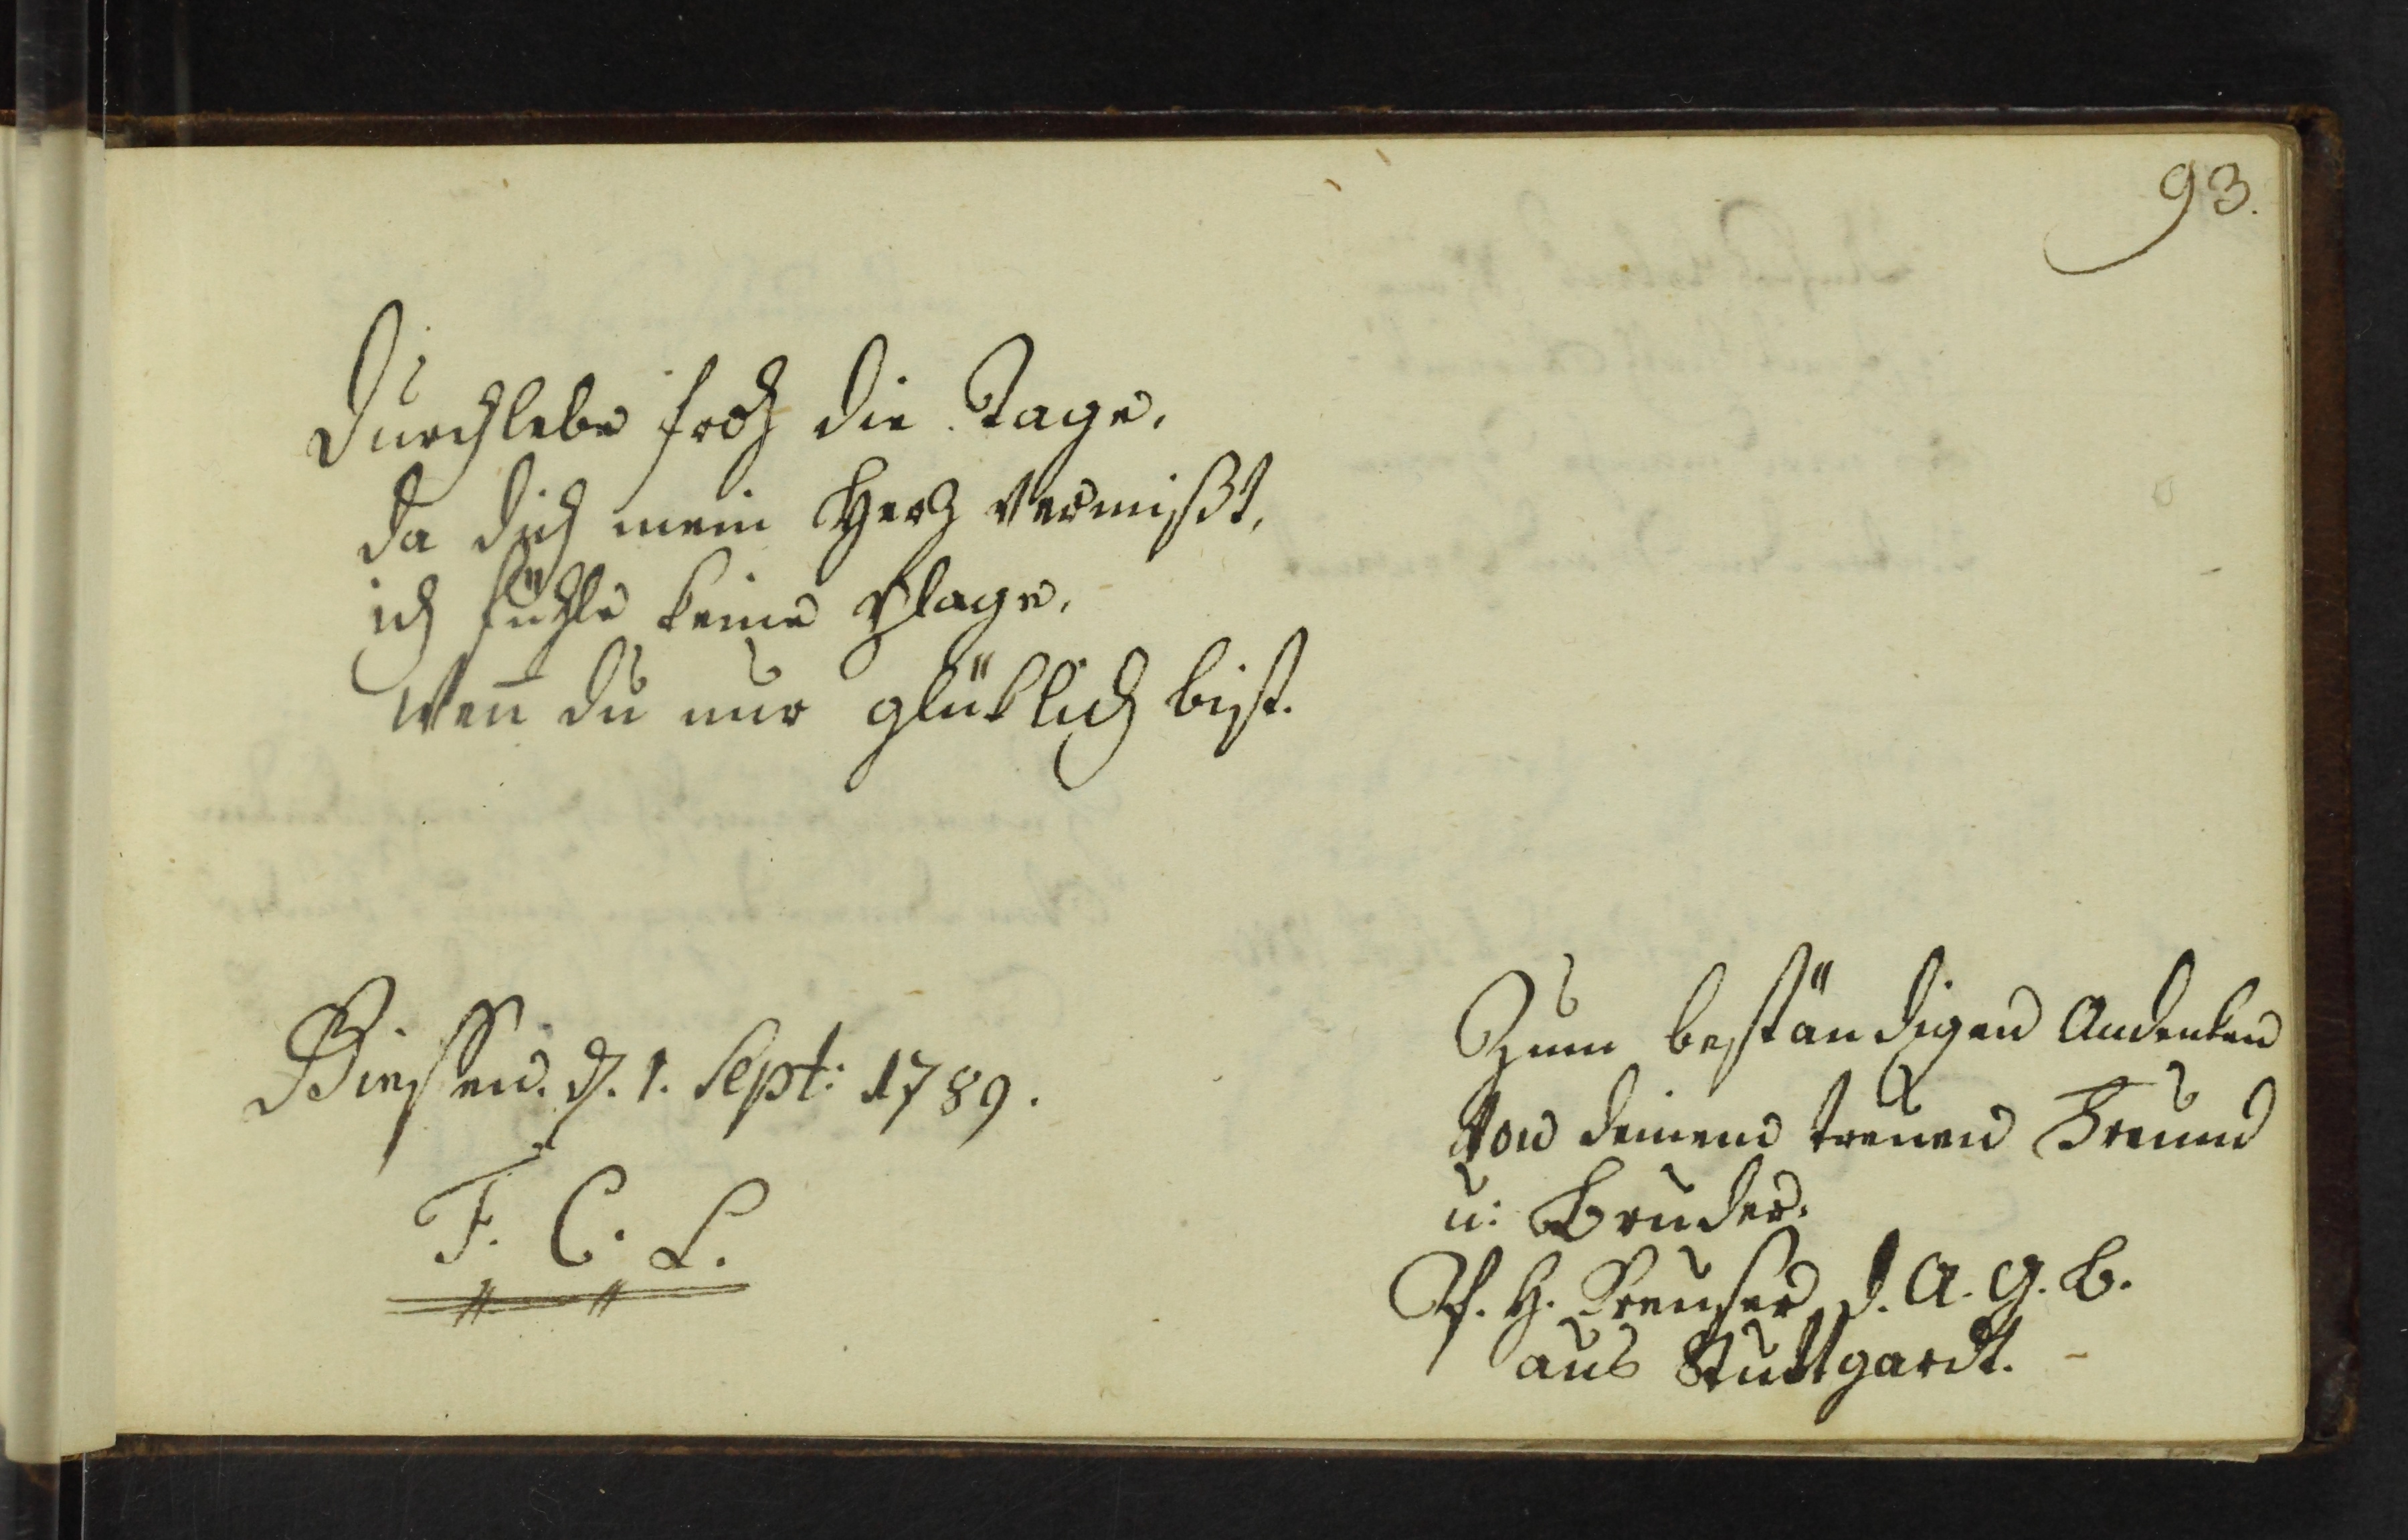 93.
Durchlebe froh die Tage,
da dich mein Herz vermißt,
ich fühle keine Plage,
Wen̅ du nur glüklich bist.
Giessen. d. 1. Sept: 1789.
F. C. L.
Zum beständigen Andenken
von deinem treuen Freund
u: Bruder.
H. Preuser d. A. G. B.
aus Stuttgardt.